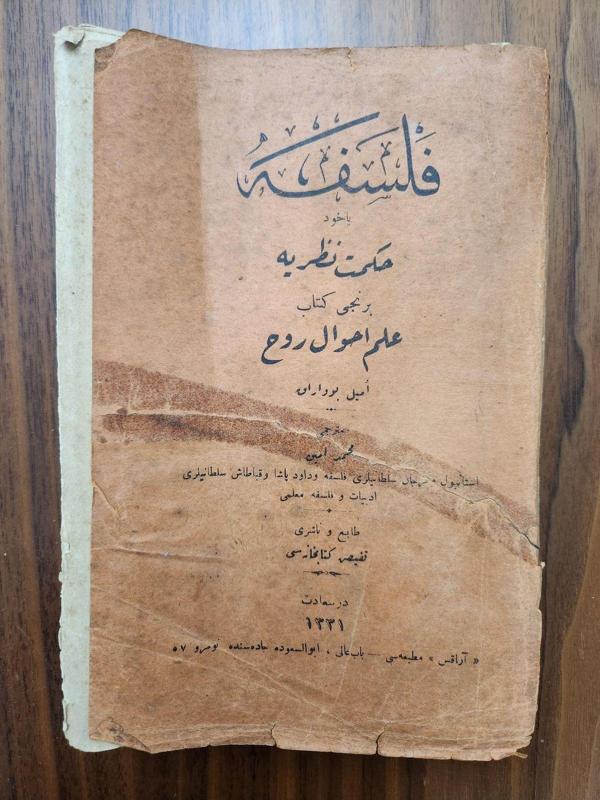 فَلْسَفَهُ
یاخود
حكمت نظریه
برنجی كتاب
علم احوال روح
أميل بوواراق
مترجمی
محمد أمين
استانبول ، مرجان سلطانيلری فلسفه وداود پاشا وقباطاش سلطانيلری
ادبيات و فلسفه معلمی
طابع و ناشری
كتابخانه‌سی
در سعادت
١٣٣١
« آراقس » مطبعه‌سی — باب عالی ، ابوالسعود جاده‌سنده نومرو ٥٧